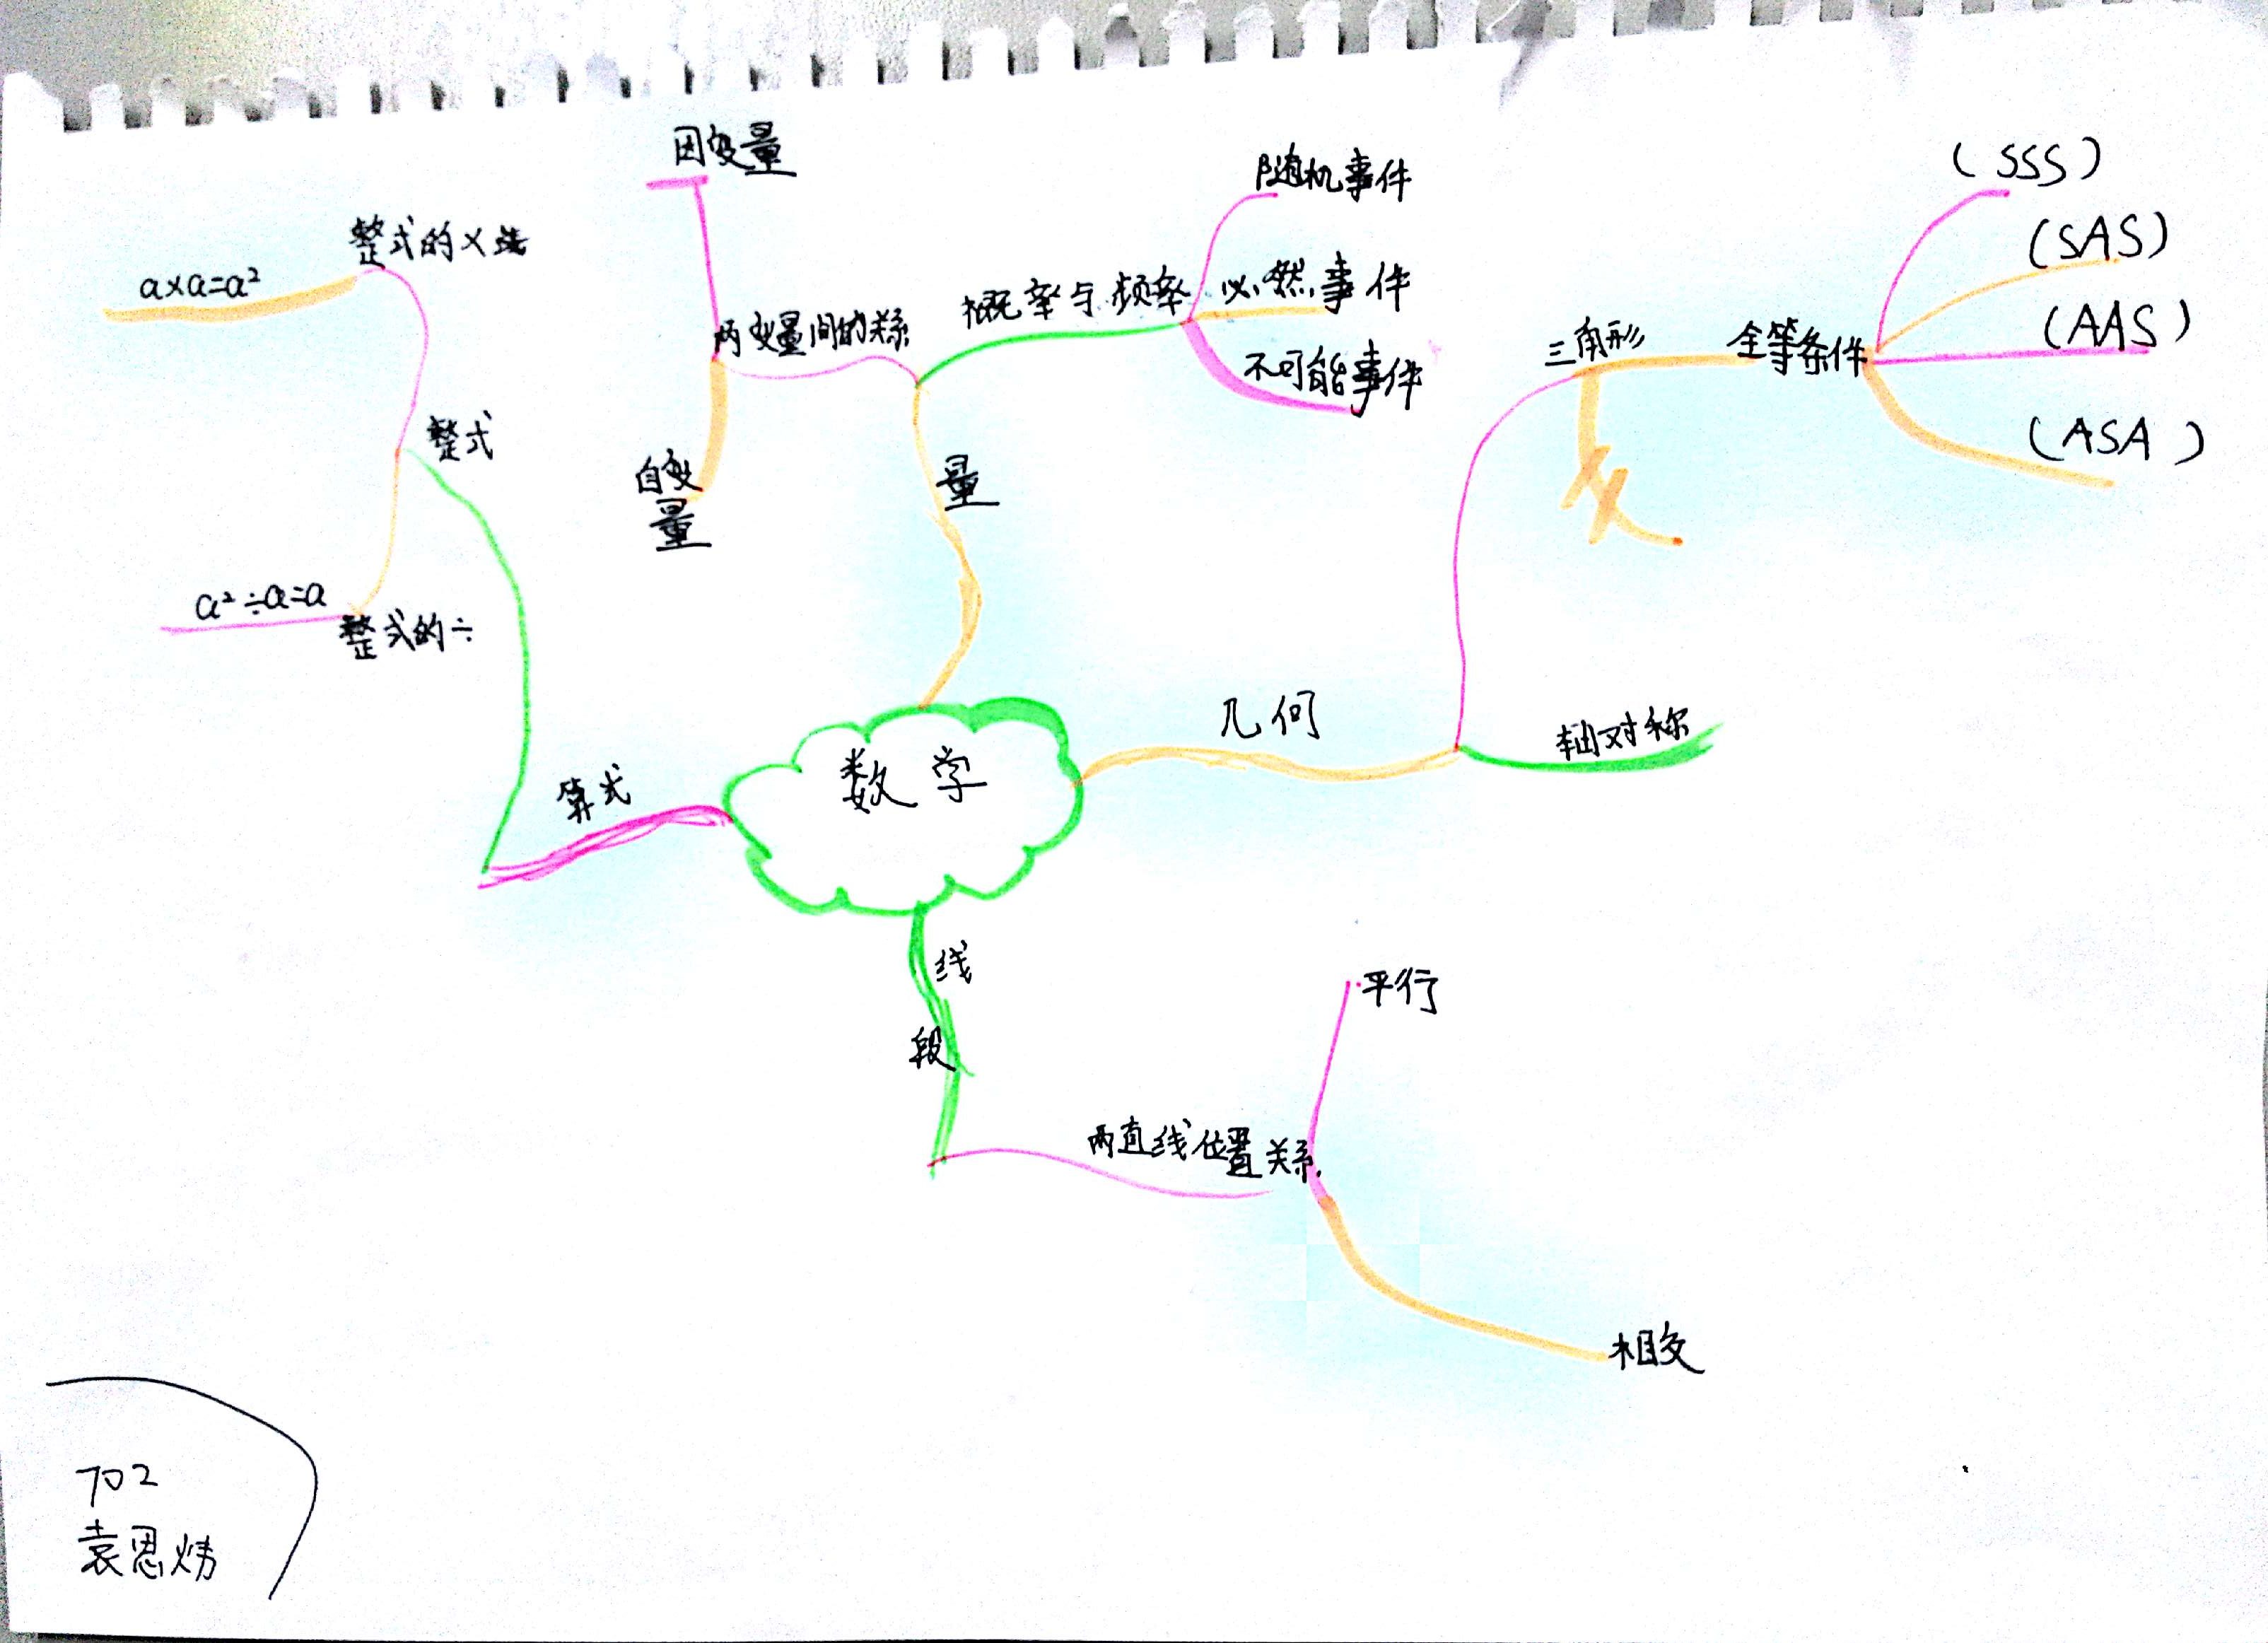 因变量
随机事件
(SSS)
整式的×法
(SAS)
a×a=a²
概率与频率
必然事件
(AAS)
两变量间的关系
三角形
全等条件
不可能事件
整式
(ASA)
自变
量
量
a²÷a=a
整式的÷
几何
轴对称
数学
算式
线
段
平行
两直线位置关系
相交
702
袁恩炜